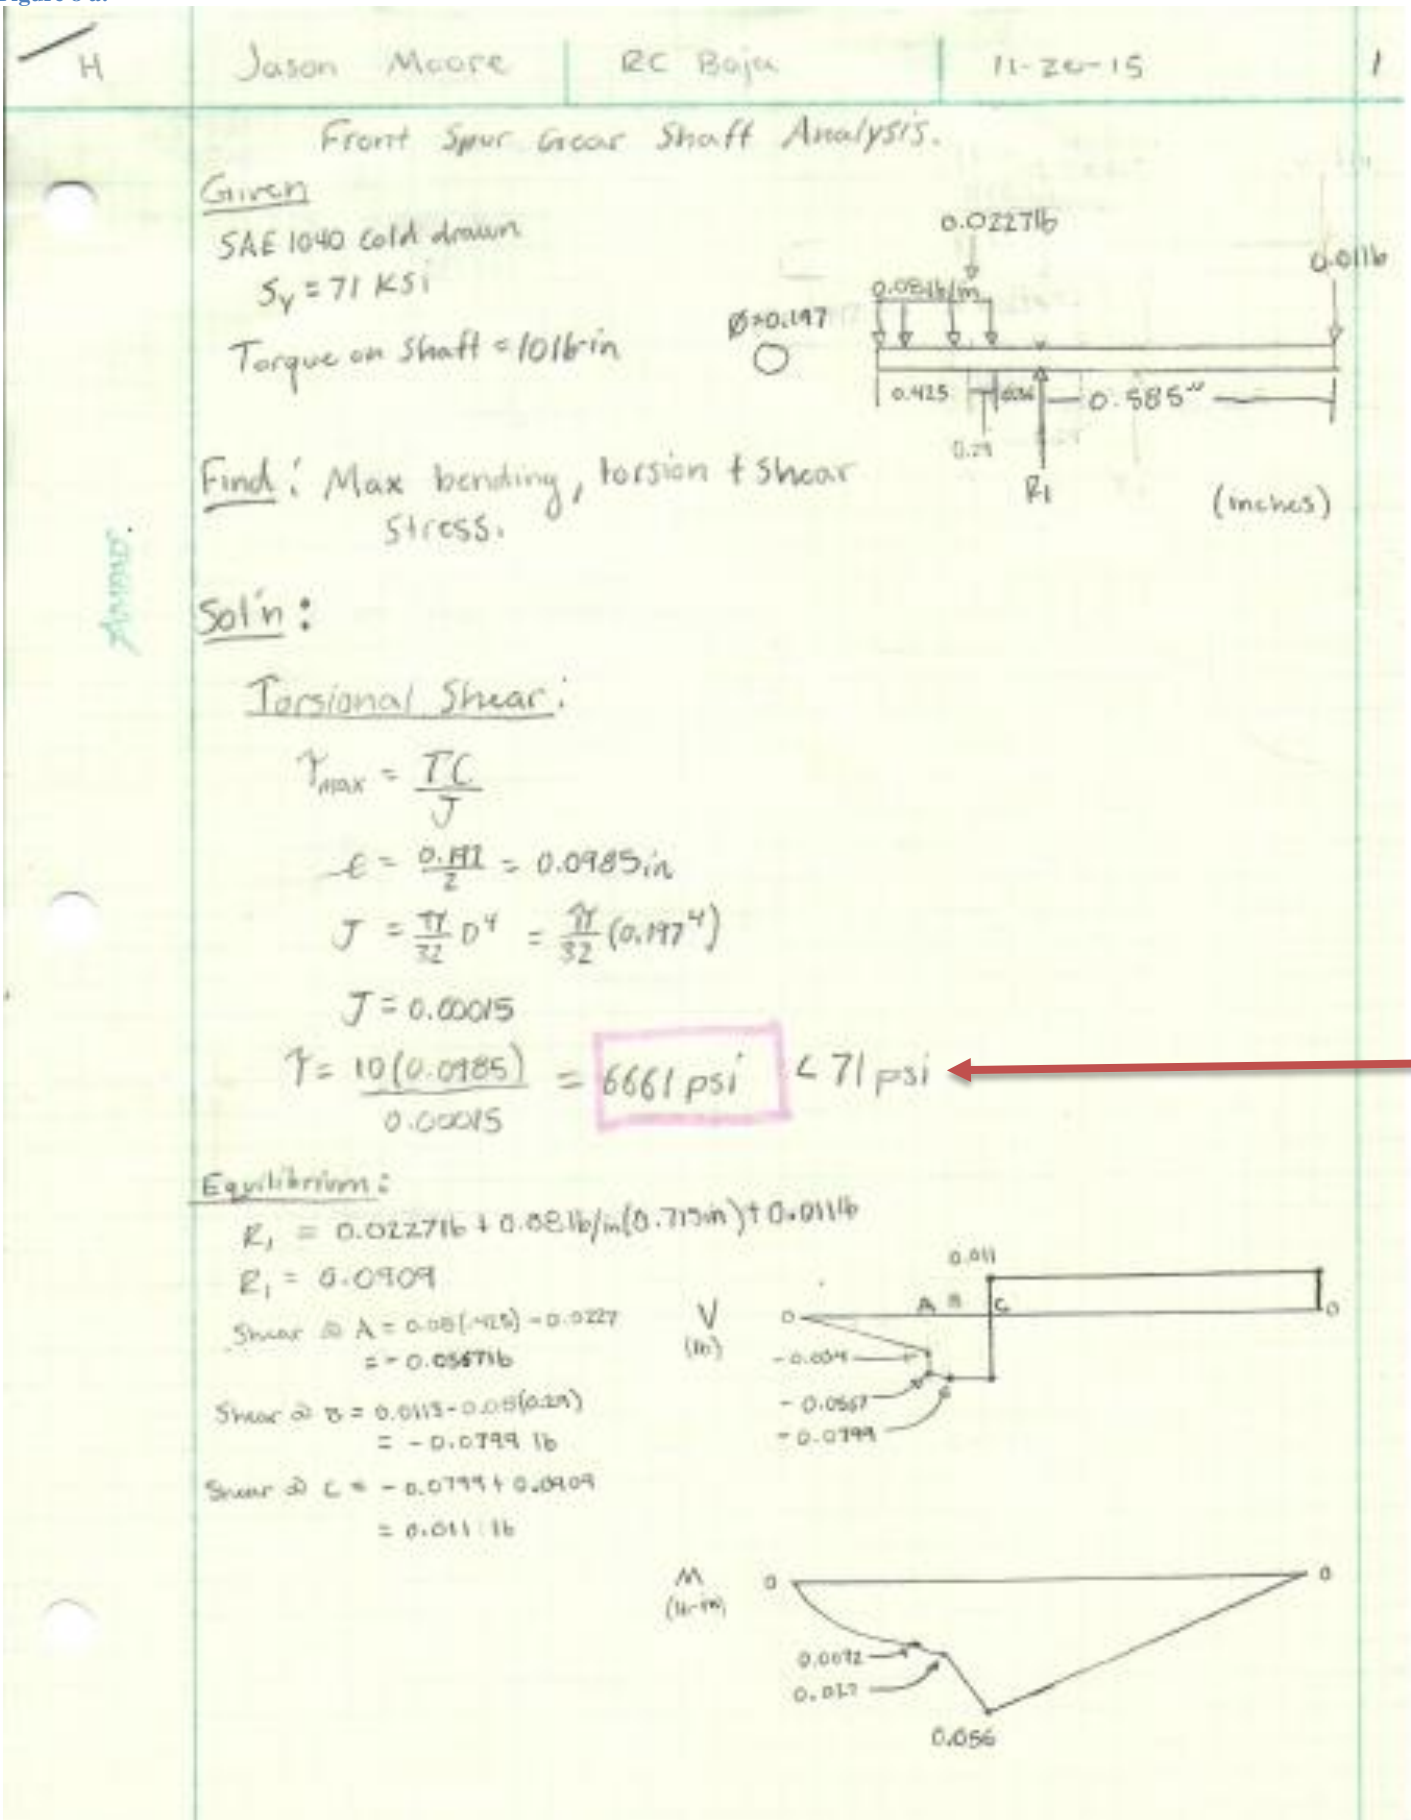 H Jason Moore RC Baja 11-20-15 1
Front Spur Gear Shaft Analysis.
Given
SAE 1040 cold drawn
Sy = 71 KSi
Torque on Shaft = 10 lb·in
0.0227lb
0.011lb
0.08lb/in
Ø=0.197
0.425
0.585"
0.29
R1
(inches)
Find: Max bending, torsion + shear
stress.
Sol'n:
Torsional Shear:
τmax = TC/J
c = 0.197/2 = 0.0985in
J = π/32 D⁴ = π/32 (0.197⁴)
J = 0.00015
τ = 10(0.0985)/0.00015 = 6661 psi < 71 psi
Equilibrium:
R1 = 0.0227lb + 0.08lb/in(0.715in) + 0.011lb
R1 = 0.0909
Shear @ A = 0.08(.425) - 0.0227
= -0.0567lb
Shear @ B = -0.08(0.29)
= -0.0799 lb
Shear @ C = -0.0799 + 0.0909
= 0.011 lb
V
(lb)
0.011
0 A B C 0
-0.034
-0.0567
-0.0799
M
(lb-in)
0 0
0.0072
0.056